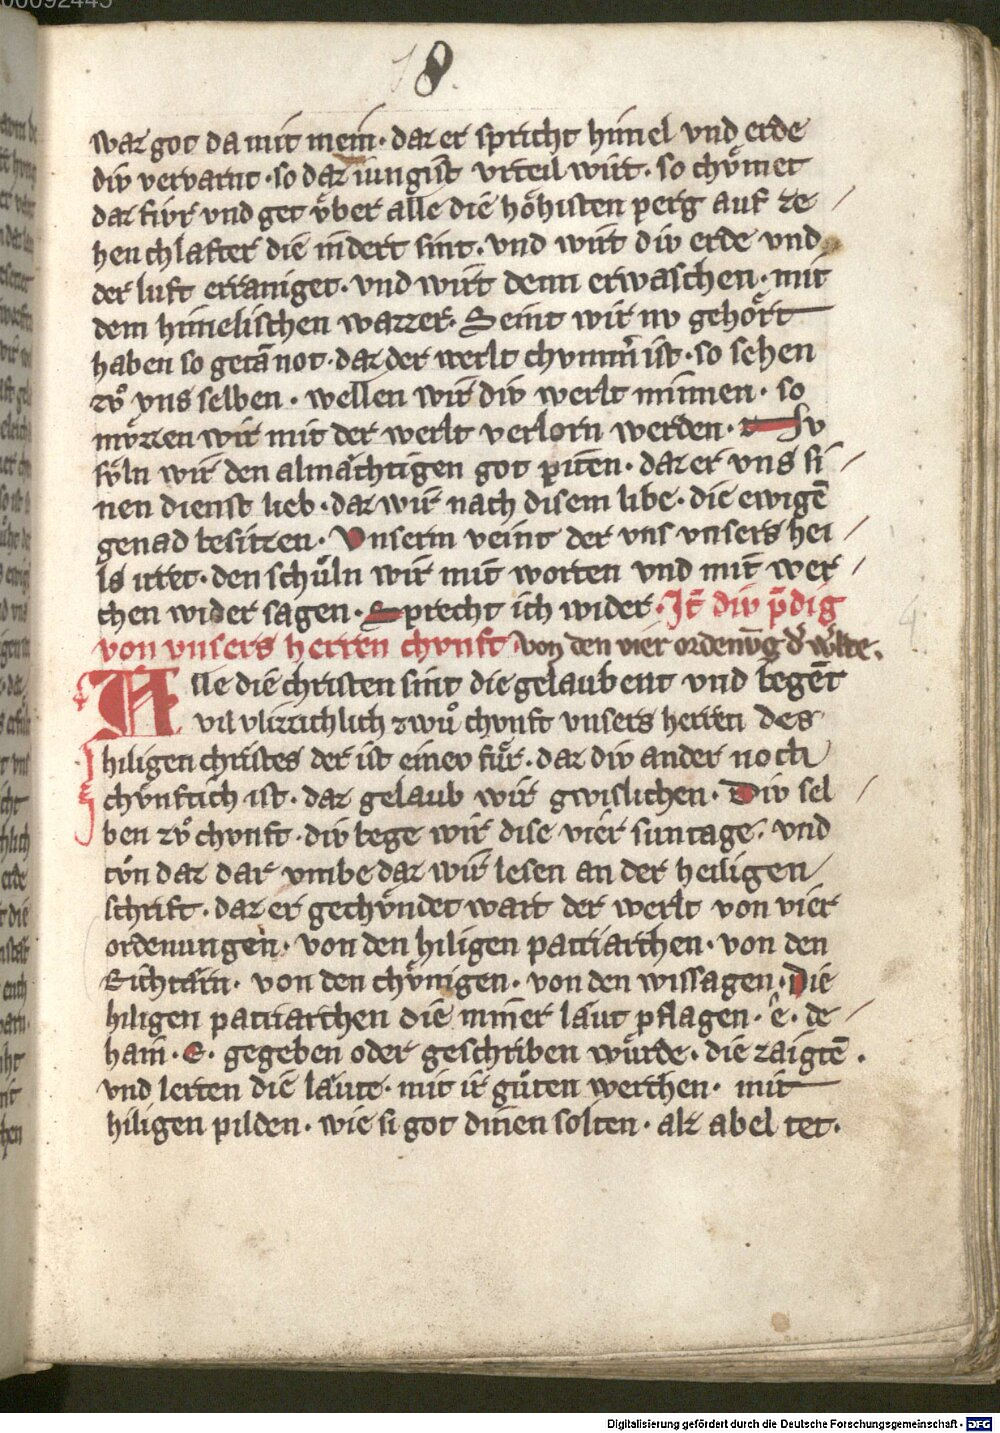 00092445
18.
waz got da mit mein · daz er spricht himel vnd erde
div vervarnt · so daz iungist vrteil wirt · so chv̊met
daz fivr vnd get v̊ber alle die ho̊histen perg auf ze /
hen chlafter die indert sint · vnd wirt div erde vnd
der luft erraniget · vnd wirt denn erwaschen · mit
dem himelischen wazzer · Seint wir nv geho̊rt
haben so getā not · daz der werlt chvmm̄ ist · so sehen
zv̊ vns selben · wellen wir div werlt minnen · so
mv̊zzen wir mit der werlt verlorn werden · Nv
sv̊ln wir den almachtigen got piten · daz er vns si /
nen dienst lieb · daz wir nach disem libe · die ewigē
genad besitzen · Vnserm veint der vns vnsers hei /
ls irret · den schu̍ln wir mit worten vnd mit wer /
chen wider sagen · Sprecht ich wider · It̄ div p̄dig
von vnsers herren chvnft von den vier ordenūg d̄ w̄lte .
Alle die christen sint die gelaubent vnd begēt
vil vlizzichlich zwu̍ chvnft vnsers herren des
hiligen christes der ist einev fu̍r · daz div ander noch
chv̍nftich ist · daz gelaub wir gwislichen · Div sel /
ben zv̊ chvnft · div bege wir dise vier suntage · vnd
tv̍n daz dar vmbe daz wir lesen an der heiligen /
schrift · daz er gechv̊ndet wart der werlt von vier
ordenungen · von den hiligen patriarchen · von den
Richtarn · von den chv̊nigen · von den wissagen · Die
hiligen patriarchen die im̄er laut pflagen · ê · de /
hain · E · gegeben oder geschriben wu̍rde · die zaigtē .
vnd lerten die laute · mit ir gu̍ten werchen · mit
hiligen pilden · wie si got dinen solten · alz abel tet ·
Digitalisierung gefördert durch die Deutsche Forschungsgemeinschaft - DFG